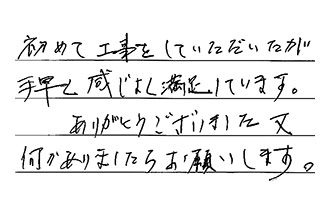 初めて工事をしていただいたが
手早く感じよく満足しています。
ありがとうございました 又
何かありましたらお願いします。